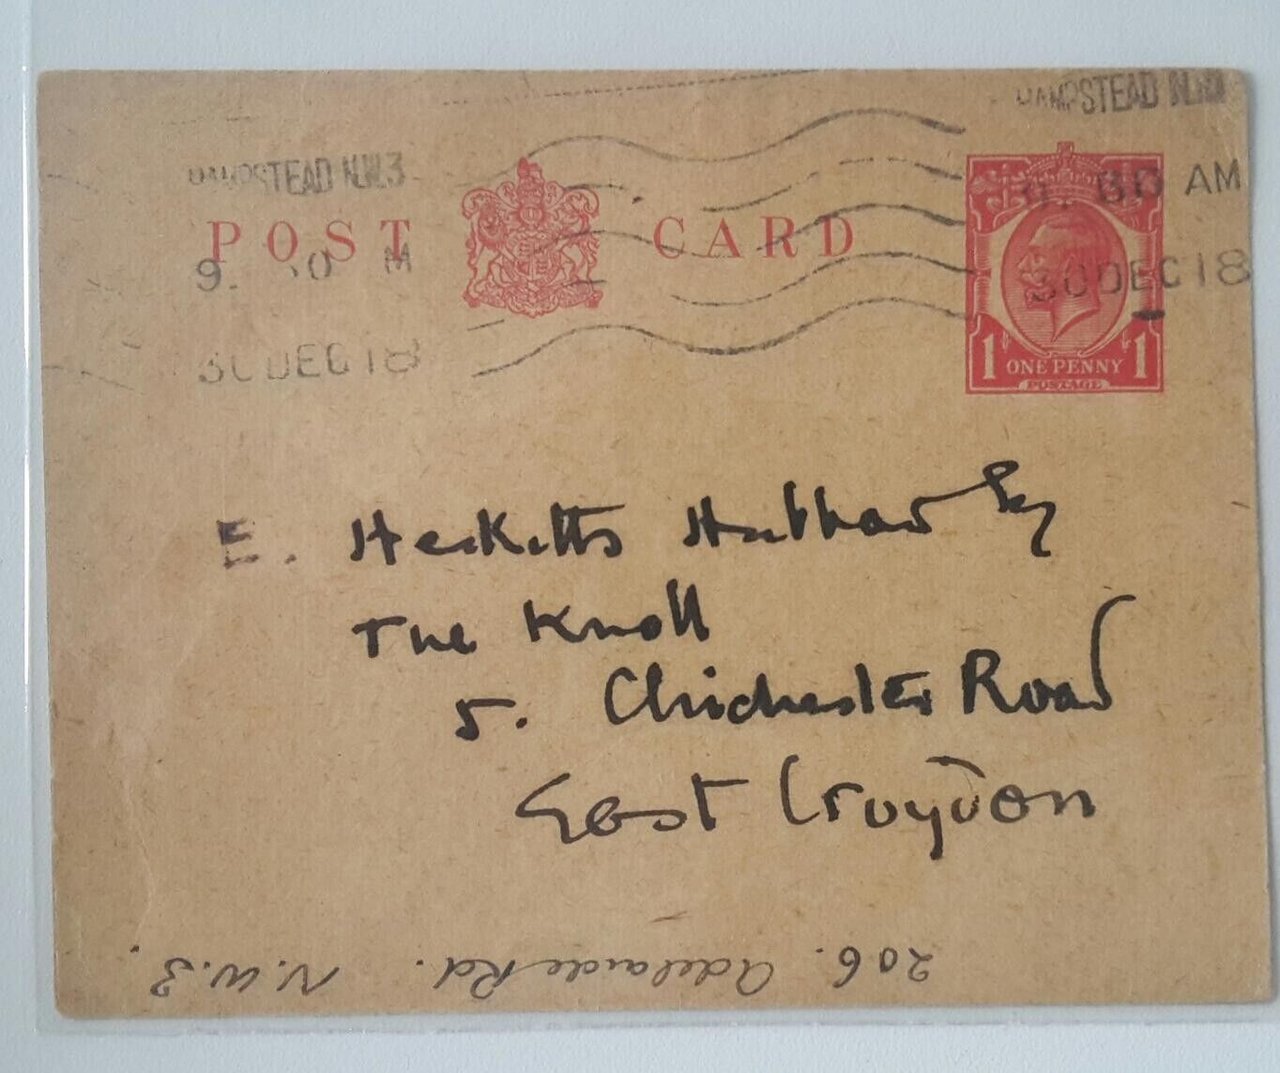 HAMPSTEAD N.W.3
POST CARD
9. 30 AM
30 DEC 18
HAMPSTEAD N.W.
9. 30 AM
30 DEC 18
1 ONE PENNY 1
POSTAGE
E. Heskitts Hubbard Esq
The Knoll
5. Chichester Road
East Croydon
206. Adelaide Rd. N.W.3.